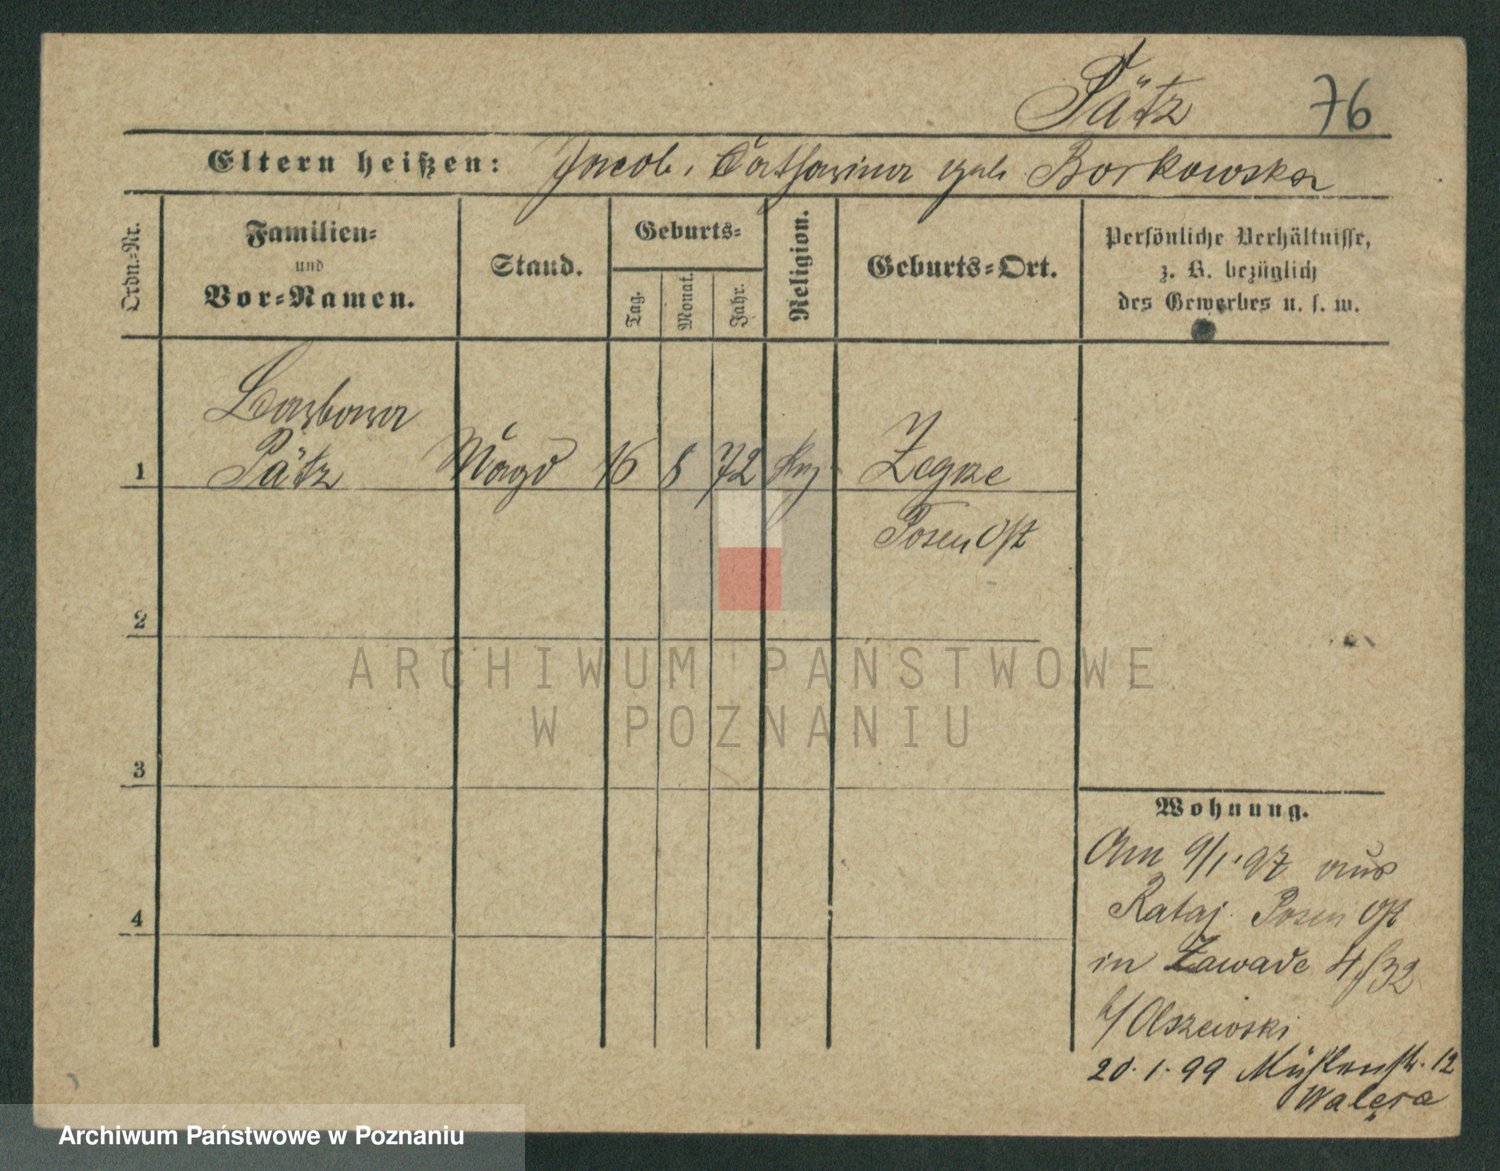 Pätz 76
Eltern heißen: Jacob, Catharina geb. Borkowska
Ordn.-Nr.
Familien- und Vor-Namen.
Stand.
Geburts-
Tag.
Monat.
Jahr.
Religion.
Geburts-Ort.
Persönliche Verhältnisse,
z. B. bezüglich
des Gewerbes u. s. w.
Barbara
1 Pätz Magd 16 8 72 Zegrze
Posen Ost
2
3
4
ARCHIWUM PAŃSTWOWE
W POZNANIU
Wohnung.
Am 9/1.97 aus
Rataj Posen Ost
in Zawade 4/32
b/ Olszewski
20.1.99 Mühlenstr. 12
Walęsa
Archiwum Państwowe w Poznaniu